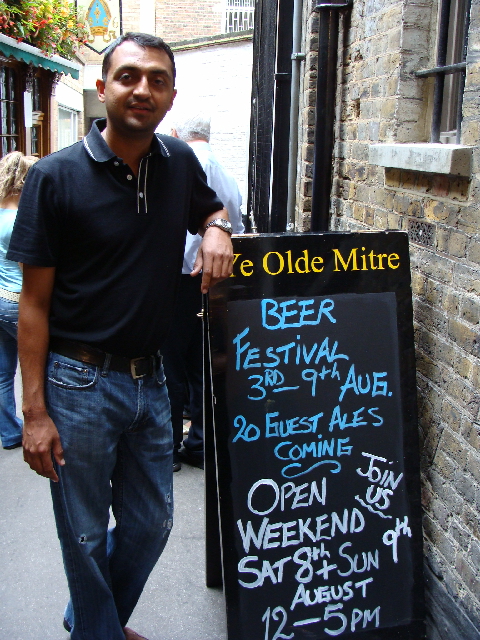 Ye Olde Mitre
BEER
FESTIVAL
3RD - 9th AUG.
20 GUEST ALES
COMING
JOIN
US
OPEN
WEEKEND
SAT 8th + SUN 9th
AUGUST
12-5PM